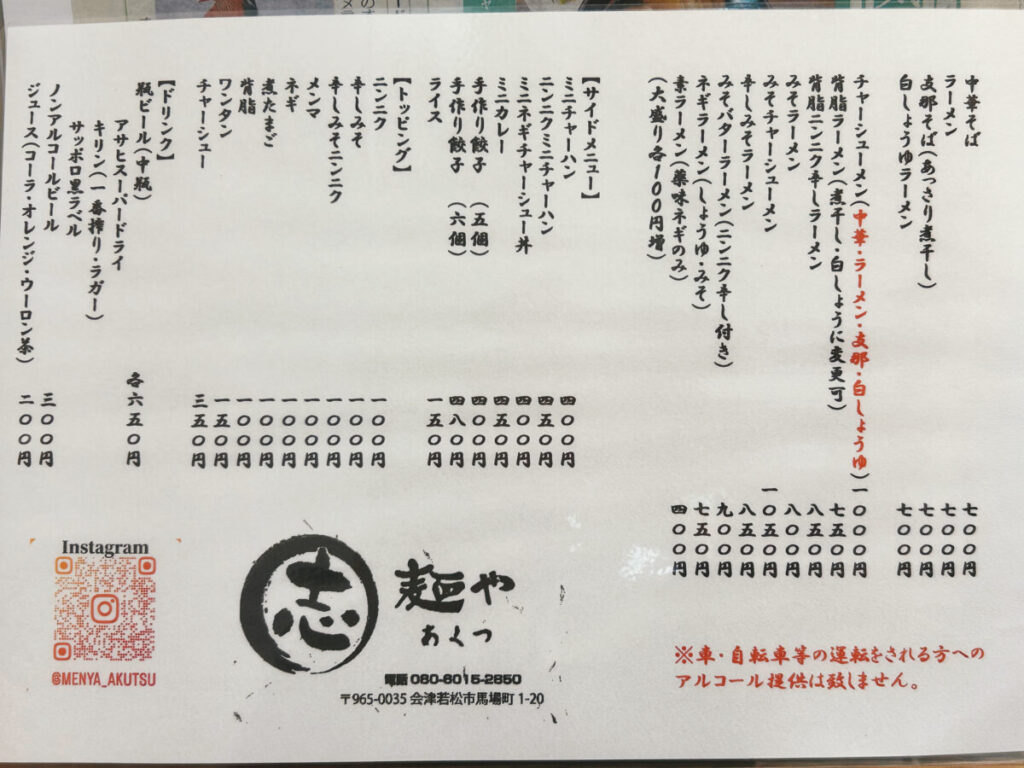 中華そば 七〇〇円
ラーメン 七〇〇円
支那そば(あっさり煮干し) 七〇〇円
白しょうゆラーメン 七〇〇円
チャーシューメン(中華・ラーメン・支那・白しょうゆ) 一〇〇〇円
背脂ラーメン(煮干し・白しょうに変更可) 七五〇円
背脂ニンニク辛しラーメン 八五〇円
みそラーメン 八〇〇円
みそチャーシューメン 一〇五〇円
辛しみそラーメン 八五〇円
みそバターラーメン(ニンニク辛し付き) 九〇〇円
ネギラーメン(しょうゆ・みそ) 七五〇円
素ラーメン(薬味ネギのみ) 四〇〇円
(大盛り各100円増)
【サイドメニュー】
ミニチャーハン 四〇〇円
ニンニクミニチャーハン 四五〇円
ミニネギチャーシュー丼 四〇〇円
ミニカレー 三五〇円
手作り餃子(五個) 四〇〇円
手作り餃子(六個) 四八〇円
ライス 一五〇円
【トッピング】
ニンニク 一〇〇円
辛しみそ 一〇〇円
辛しみそニンニク 一〇〇円
メンマ 一〇〇円
ネギ 一〇〇円
煮たまご 一〇〇円
背脂 一〇〇円
ワンタン 一五〇円
チャーシュー 三五〇円
【ドリンク】
瓶ビール(中瓶) 各六五〇円
アサヒスーパードライ
キリン(一番搾り・ラガー)
サッポロ黒ラベル
ノンアルコールビール 三〇〇円
ジュース(コーラ・オレンジ・ウーロン茶) 二〇〇円
Instagram
@MENYA_AKUTSU
志
麺や
あくつ
電話 080-6015-2850
〒965-0035 会津若松市馬場町 1-20
※車・自転車等の運転をされる方への
アルコール提供は致しません。